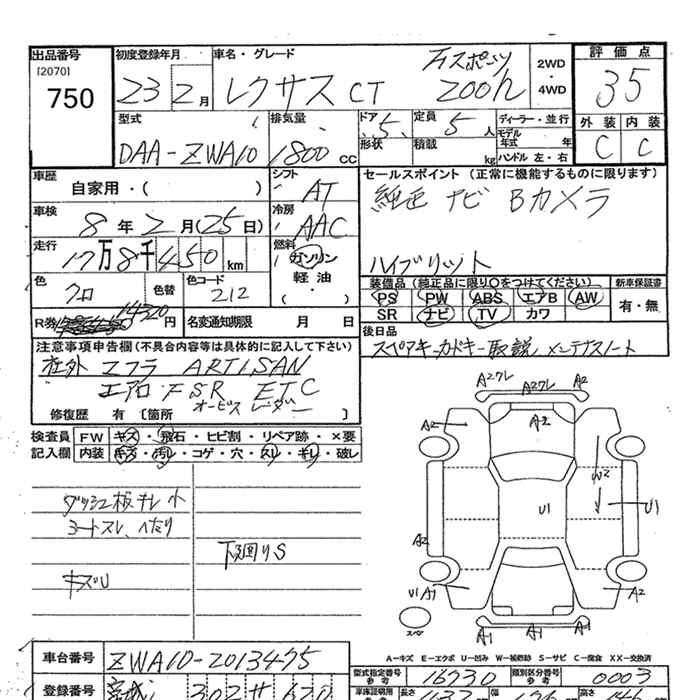 出品番号 初度登録年月 車名・グレード 2WD・4WD 評価点
[2070]
750 23 2月 レクサス CT Fスポーツ 200h 35
型式 排気量 ドア 定員 ディーラー・並行 外装 内装
DAA-ZWA10 1800cc 5 5人 モデル年式 年 C C
形状 積載 kg ハンドル 左・右
車歴 自家用・( ) シフト AT セールスポイント(正常に機能するものに限ります)
純正 ナビ Bカメラ
車検 8年2月(25日) 冷房 AAC
走行 17万8千450km 燃料 ガソリン
軽油
・( )
ハイブリット
色 クロ 色替 色コード 212
装備品(純正品に限り○をつけてください) 新車保証書
PS PW ABS エアB AW 有・無
SR ナビ TV カワ
R券 14320円 名変通知期限 月 日
後日品
スペアキー カードキー 取説 メンテナスノート
注意事項申告欄(不具合内容等は具体的に記入して下さい)
社外 マフラ ARTISAN
エアロ F S R ETC
オービス レーダー
修復歴 有 [箇所 ]
検査員記入欄 FW キズ・飛石・ヒビ割・リペア跡・×要
内装 キズ・汚レ・コゲ・穴・スレ・ギレ・破レ
ダッシュ板キレ小
シートスレ、ヘたり
下回りS
キズU
A2クレ A2クレ A2
A2 A2
W2
U1 U1
A2
U1 A1 A2
スペア A1 A1
A－キズ E－エクボ U－凹み W－補修跡 S－サビ C－腐食 XX－交換済
車台番号 ZWA10-2013475
型式指定番号 参考 16730 類別区分番号 参考 0003
登録番号 宮城 302 サ 620
車庫証明用 参考 長さ 432 幅 176 高さ